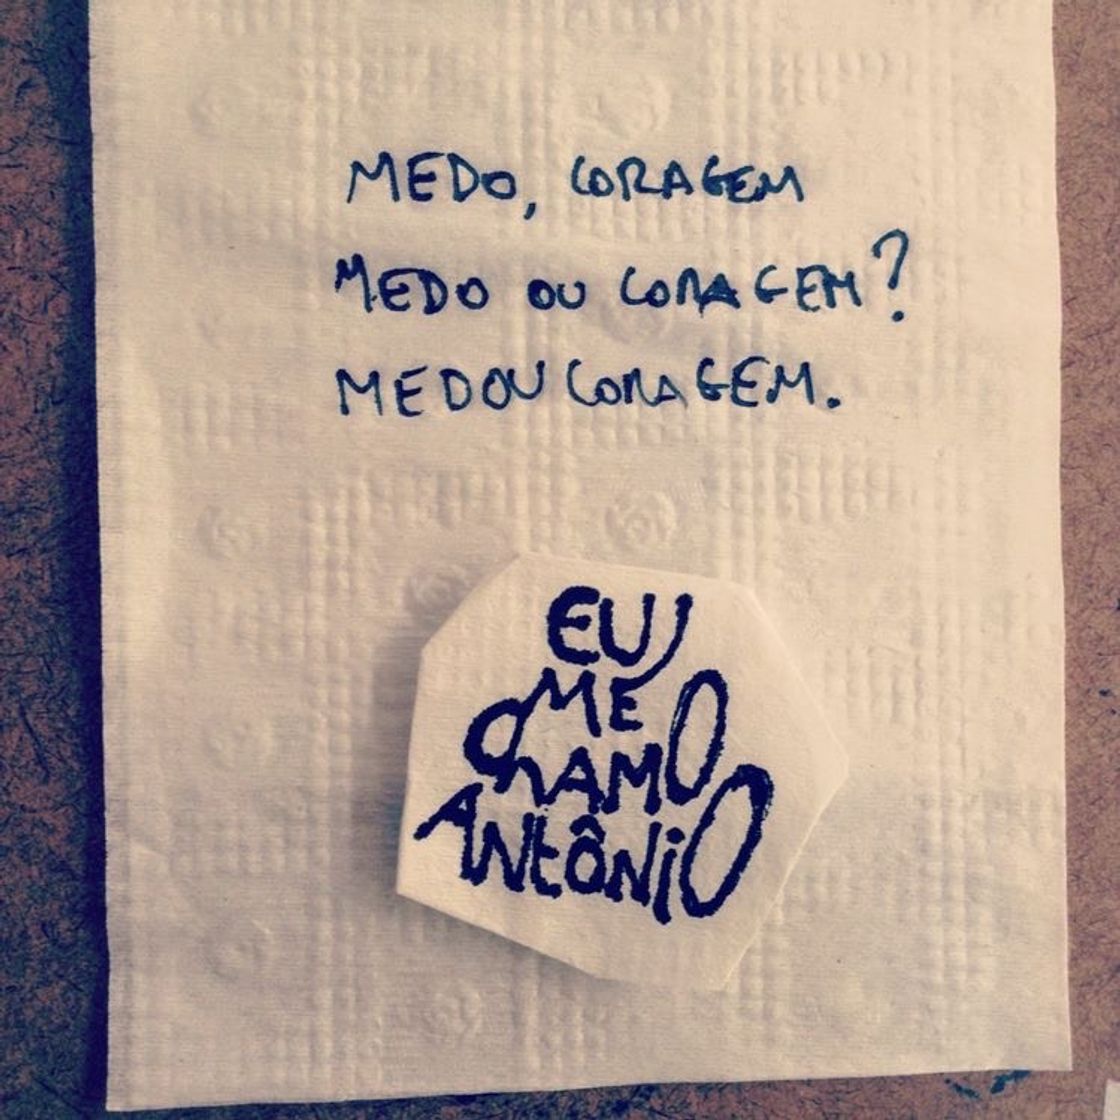 MEDO, CORAGEM
MEDO OU CORAGEM?
MEDOU CORAGEM.
EU
ME
CHAMO
ANTÔNIO